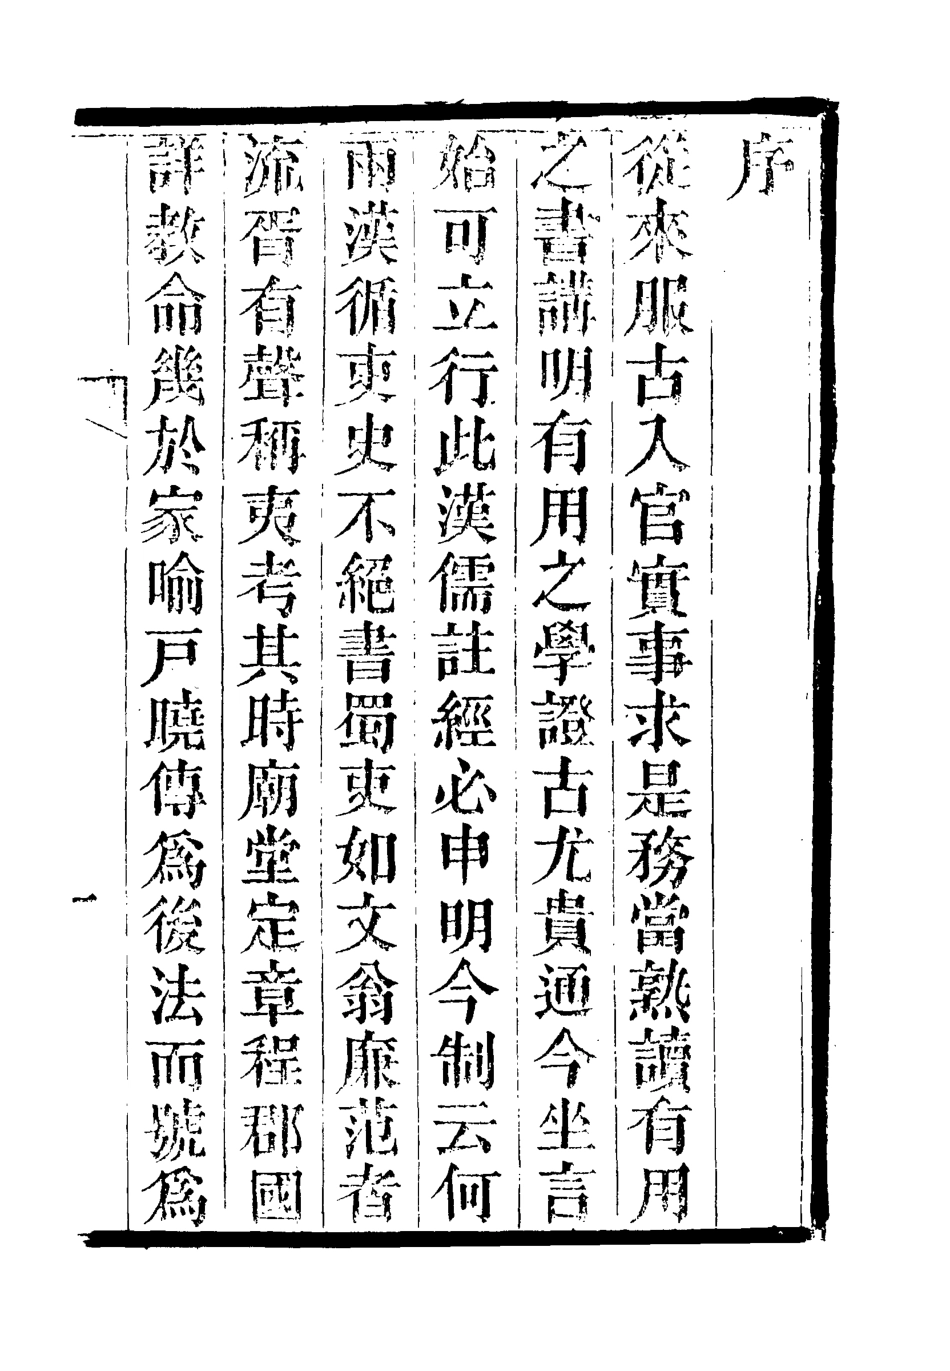 序
從來服古入官實事求是務當熟讀有用
之書講明有用之學證古尤貴通今坐言
始可立行此漢儒註經必申明今制云何
兩漢循吏史不絕書蜀吏如文翁廉范者
流胥有聲稱夷考其時廟堂定章程郡國
詳教命幾於家喻戸曉傳爲後法而號爲
一